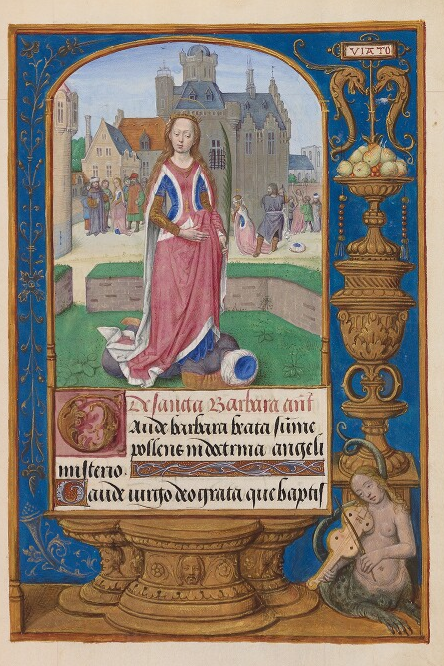 VIATO
De sancta Barbara añt
GAude barbara beata sũme
pollens in doctrina angeli
misterio.
Gaude uirgo deo grata que baptis